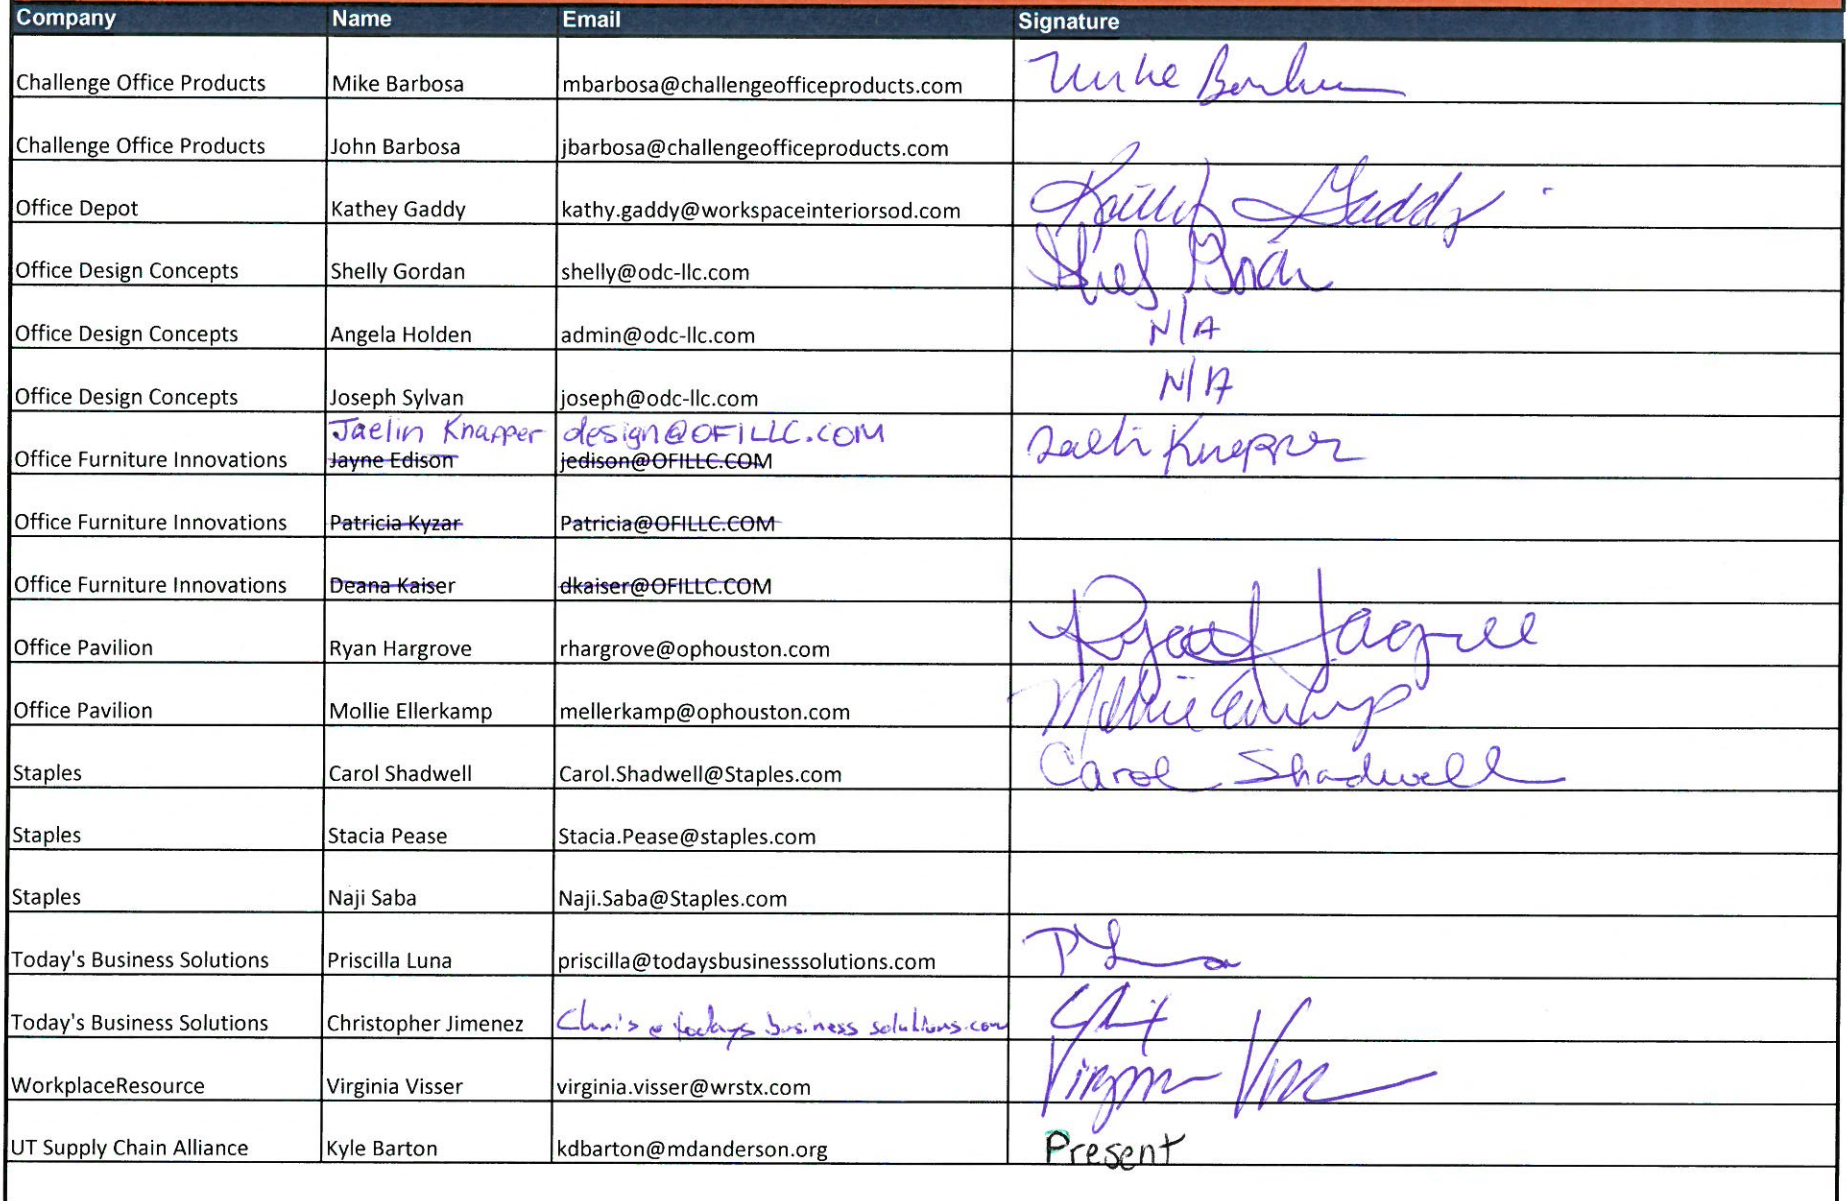 Company Name Email Signature
Challenge Office Products Mike Barbosa mbarbosa@challengeofficeproducts.com Mike Barbosa
Challenge Office Products John Barbosa jbarbosa@challengeofficeproducts.com
Office Depot Kathey Gaddy kathy.gaddy@workspaceinteriorsod.com Kathy Gaddy
Office Design Concepts Shelly Gordan shelly@odc-llc.com
Office Design Concepts Angela Holden admin@odc-llc.com N/A
Office Design Concepts Joseph Sylvan joseph@odc-llc.com N/A
Jaelin Knapper design@OFILLC.COM
Office Furniture Innovations Jayne Edison jedison@OFILLC.COM Jaelin Knapper
Office Furniture Innovations Patricia Kyzar Patricia@OFILLC.COM
Office Furniture Innovations Deana Kaiser dkaiser@OFILLC.COM
Office Pavilion Ryan Hargrove rhargrove@ophouston.com
Office Pavilion Mollie Ellerkamp mellerkamp@ophouston.com
Staples Carol Shadwell Carol.Shadwell@Staples.com Carol Shadwell
Staples Stacia Pease Stacia.Pease@staples.com
Staples Naji Saba Naji.Saba@Staples.com
Today's Business Solutions Priscilla Luna priscilla@todaysbusinesssolutions.com
Today's Business Solutions Christopher Jimenez Chris@todaysbusinesssolutions.com
WorkplaceResource Virginia Visser virginia.visser@wrstx.com
UT Supply Chain Alliance Kyle Barton kdbarton@mdanderson.org Present